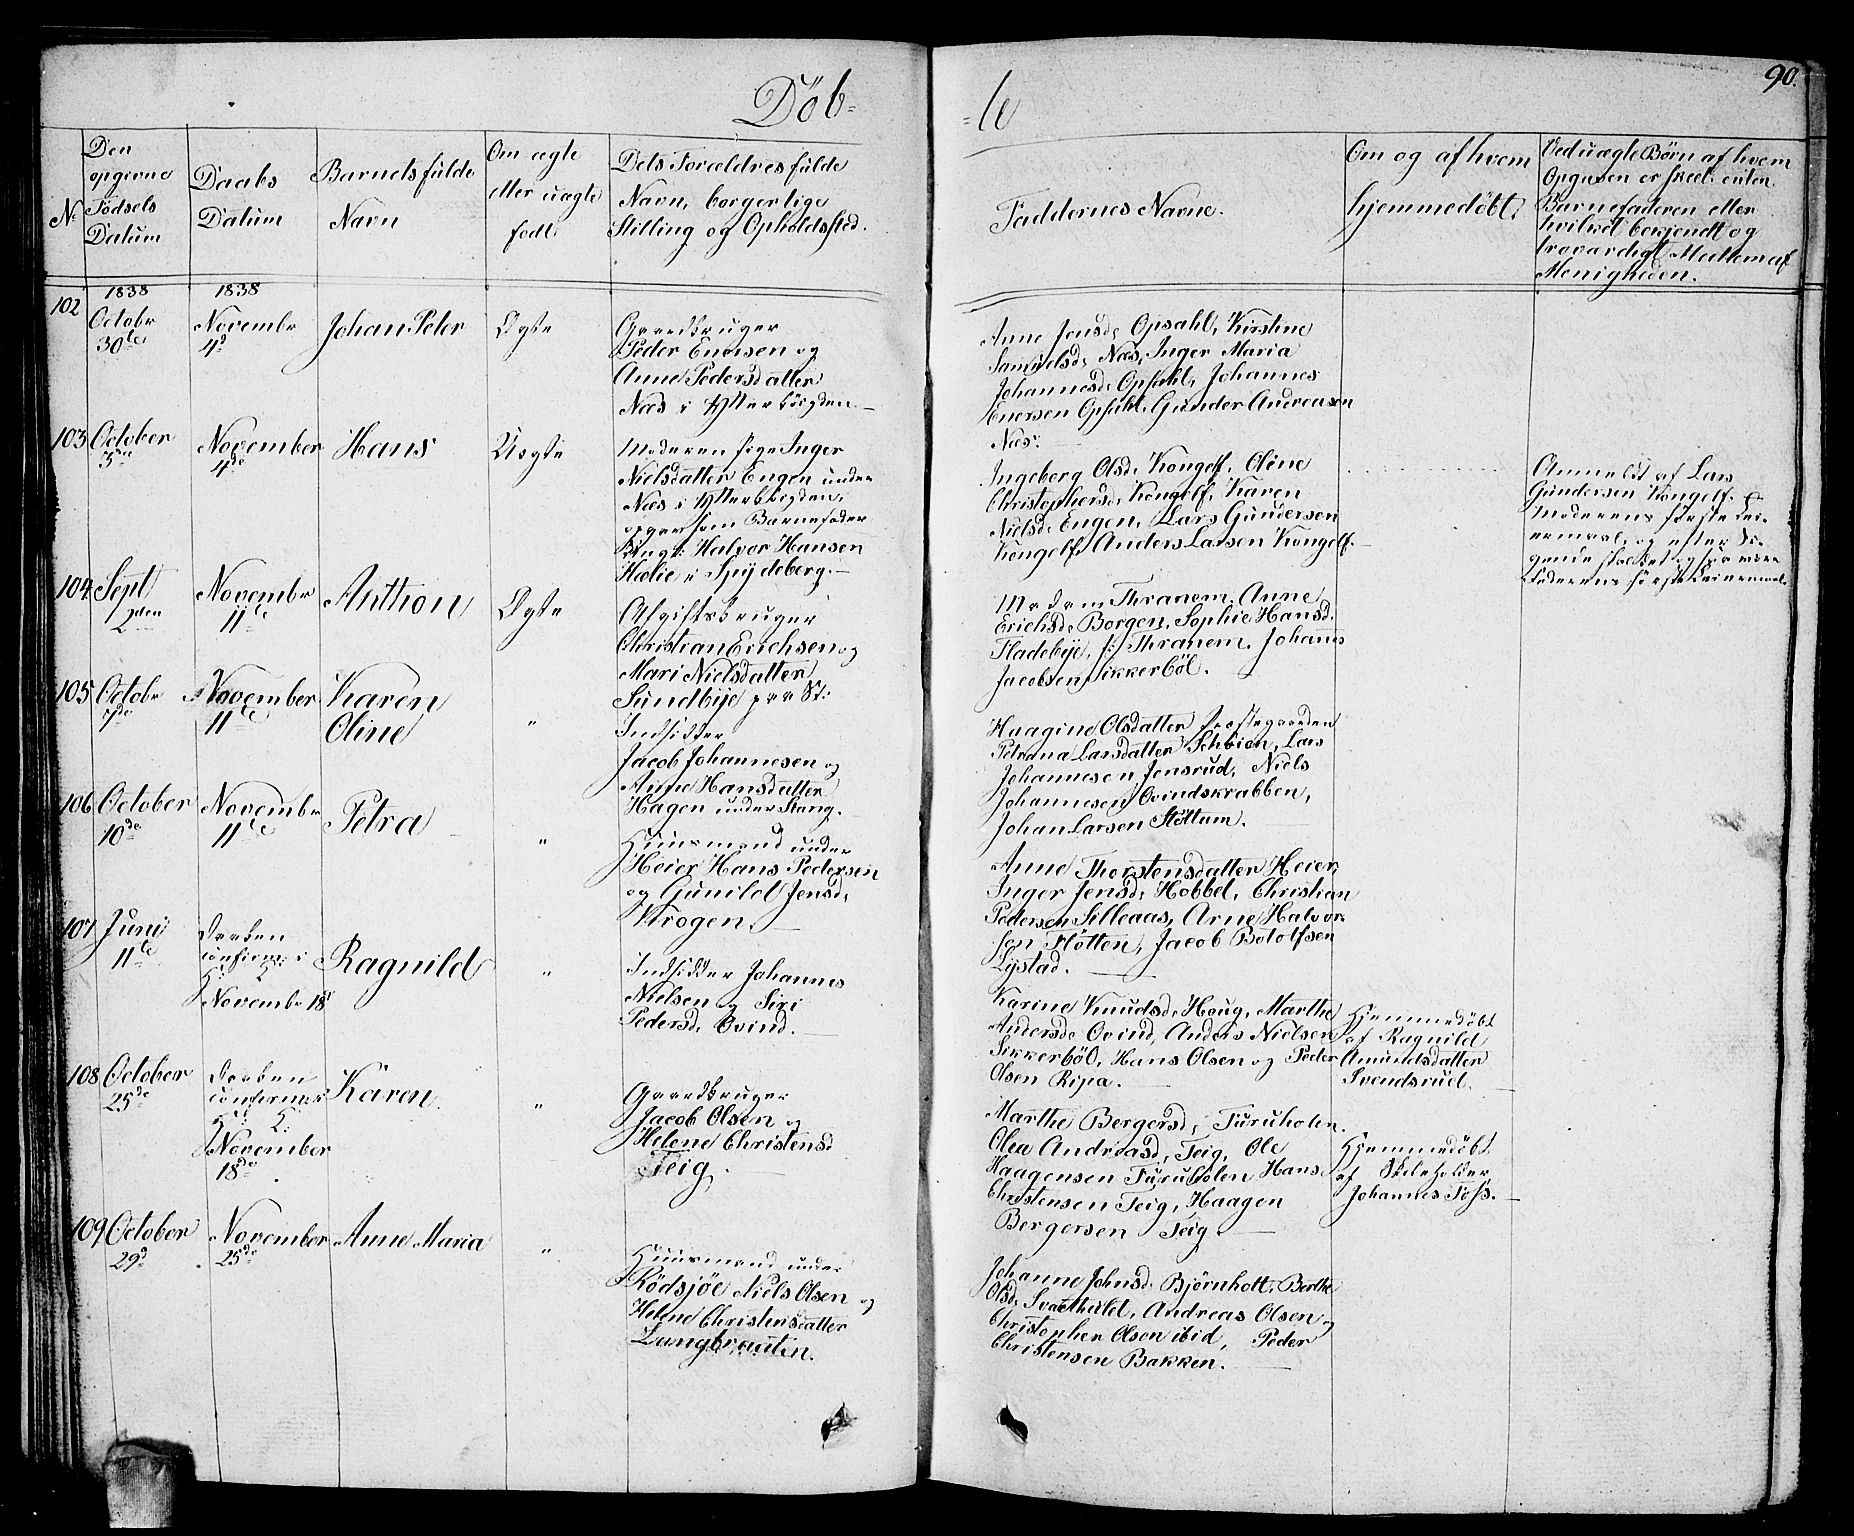 90.
Döb-
-te
Den
opgivne
Födsels
Datum
No
Daabs
Datum
Barnets fulde
Navn
Om ægte
eller uægte
född
Dets Forældres fulde
Navn, borgerlige
Stilling og Opholdssted.
Faddernes Navne.
Om og af hvem
hjemmedöbt.
Ved uægte Börn af hvem
Opgiven er skeet: enten
Barnefaderen eller
hvilket bekjendt og
troværdigt Medlem af
Menigheden.
1838
1838
102
Octobr
30te
Novembr
4d
Johan Peter
Ægte
Gaardbruger
Peder Enersen og
Anne Pedersdatter
Næs i Ytterbögden.
Anne Jensd. Opsahl, Kirstine
Samuelsd. Næs, Inger Maria
Johannesd. Opsahl, Johannes
Enersen Opsahl. Gunder Andreasen
Næs.
103
October
3die
November
4de
Hans
Uægte
Moderen Pige Inger
Nielsdatter Engen under
Næs i Ytterbögden,
opger som Barnefader
Ungk: Halvor Hansen
Hælie i Spydeberg.
Ingeberg Olsd. Kongelf. Oline
Christophersd. Kongelf. Karen
Nielsd. Engen, Lars Gundersen
Kongelf. Anders Larsen Kongelf.
Anmeldt af Lars
Gundersen Kongelf. Er
Moderens förste Lei-
ermaal, og efter Si-
gende skal det ogsaa være
Faderens förste Leiermaal.
104
Sept
2den
Novembr
11te
Anthon
Ægte
Afgiftsbruger
Christian Erichsen og
Mari Nielsdatter
Sundbye paa St:
Madam Thranem, Anne
Erichsd. Borgen, Sophie Hansd.
Fladebye, Thranem, Johannes
Jacobsen Sikkerböl.
105
Octobr
7de
November
11te
Karen
Oline
"
Indsidder
Jacob Johannesen og
Anne Hansdatter
Hagen under Stang.
Haagine Olsdatter Præstegaarden
Petrana Larsdatter Schöien, Lars
Johannesen Jensrud, Niels
Johannesen Ovindskrabben,
Johan Larsen Stöttum.
106
October
10de
Novembr
11te
Petra
"
Huusmand under
Heier Hans Pedersen
og Gunild Jensd.
Krogen.
Anne Thorstensdatter Heier,
Inger Jensd. Hobbel, Christian
Pedersen Silleaas, Arne Halvor-
sen Flötten, Jacob Bolottsen
Lystad.
107
Juni
11te
Daaben
confirm: i
H: K:
Novembr 18
Ragnild
"
Indsidder Johannes
Nielsen og Siri
Pedersd. Ovind.
Karine Knudsd. Houg, Marthe
Andersd. Ovind, Anders Nielsen
Sikkerböl, Hans Olsen og Peder
Olsen Ripa.
Hjemmedöbt
af Ragnild
Amundsdatter
Svendsrud.
108
October
25de
Daaben
confirmer
H: K:
November
18de
Karen
"
Gaardbruger
Jacob Olsen og
Helene Christensd
Teig.
Marthe Bergersd. Furuholen.
Olea Andreasd. Teig, Ole
Haagensen Furuholen Hans
Christensen Teig, Haagen
Bergersen Teig.
Hjemmedöbt
af Skoleholder
Johannes Foss.
109
October
29d
November
25de
Anne Maria
"
Huusmand under
Rödsjöe Niels Olsen og
Helene Christensdatter
Lungbrauten.
Johanne Johnsd. Björnholt, Berthe
Olsd. Svarthuld, Andreas Olsen og
Christopher Olsen ibid, Peder
Christensen Bakken.